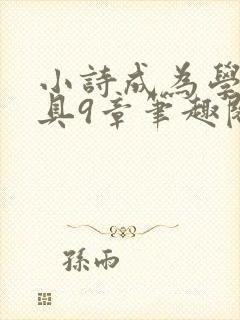 小詩成為學
具9章筆趣閱
孫雨